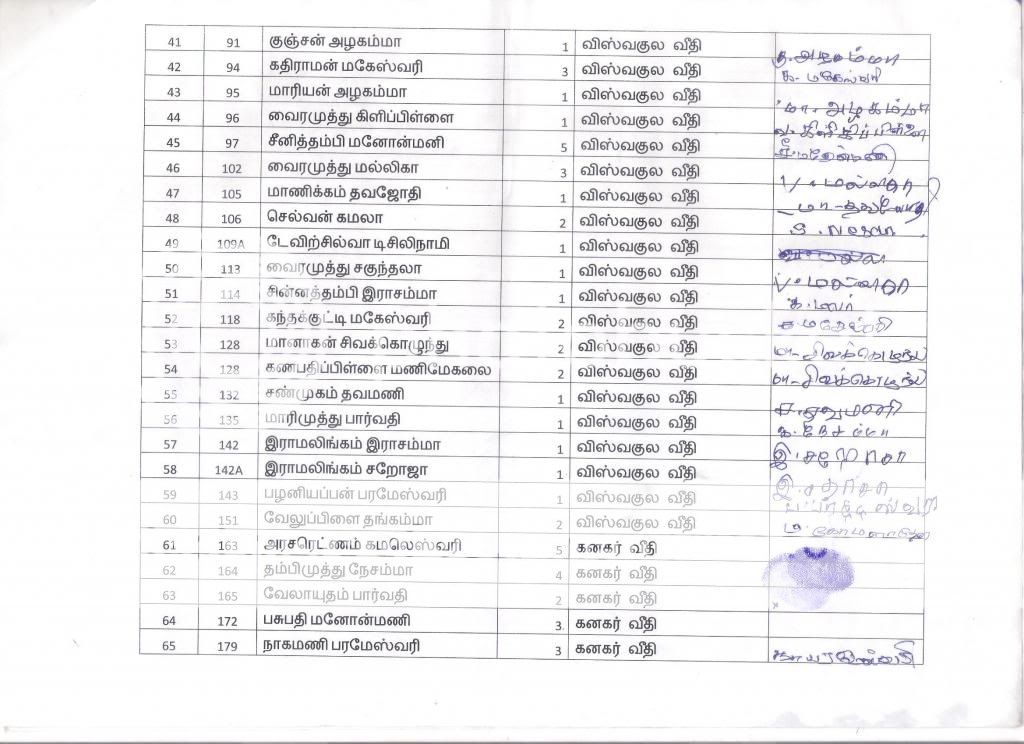 41 91 குஞ்சன் அழகம்மா 1 விஸ்வகுல வீதி கு. அழகம்மா
42 94 கதிராமன் மகேஸ்வரி 3 விஸ்வகுல வீதி க. மகேஸ்வரி
43 95 மாரியன் அழகம்மா 1 விஸ்வகுல வீதி மா. அழகம்மா
44 96 வைரமுத்து கிளிப்பிள்ளை 1 விஸ்வகுல வீதி
45 97 சீனித்தம்பி மனோன்மனி 5 விஸ்வகுல வீதி
46 102 வைரமுத்து மல்லிகா 3 விஸ்வகுல வீதி
47 105 மாணிக்கம் தவஜோதி 1 விஸ்வகுல வீதி
48 106 செல்வன் கமலா 2 விஸ்வகுல வீதி
49 109A டேவிற்சில்வா டிசிலிநாமி 1 விஸ்வகுல வீதி
50 113 வைரமுத்து சகுந்தலா 1 விஸ்வகுல வீதி
51 114 சின்னத்தம்பி இராசம்மா 1 விஸ்வகுல வீதி
52 118 கந்தக்குட்டி மகேஸ்வரி 2 விஸ்வகுல வீதி
53 128 மானாகன் சிவக்கொழுந்து 2 விஸ்வகுல வீதி மா. சிவக்கொழுந்து
54 128 கணபதிப்பிள்ளை மணிமேகலை 2 விஸ்வகுல வீதி
55 132 சண்முகம் தவமணி 1 விஸ்வகுல வீதி
56 135 மாரிமுத்து பார்வதி 1 விஸ்வகுல வீதி
57 142 இராமலிங்கம் இராசம்மா 1 விஸ்வகுல வீதி
58 142A இராமலிங்கம் சறோஜா 1 விஸ்வகுல வீதி
59 143 பழனியப்பன் பரமேஸ்வரி 1 விஸ்வகுல வீதி
60 151 வேலுப்பிளை தங்கம்மா 2 விஸ்வகுல வீதி
61 163 அரசரெட்ணம் கமலெஸ்வரி 5 கனகர் வீதி
62 164 தம்பிமுத்து நேசம்மா 4 கனகர் வீதி
63 165 வேலாயுதம் பார்வதி 2 கனகர் வீதி x
64 172 பசுபதி மனோன்மணி 3. கனகர் வீதி
65 179 நாகமணி பரமேஸ்வரி 3 கனகர் வீதி